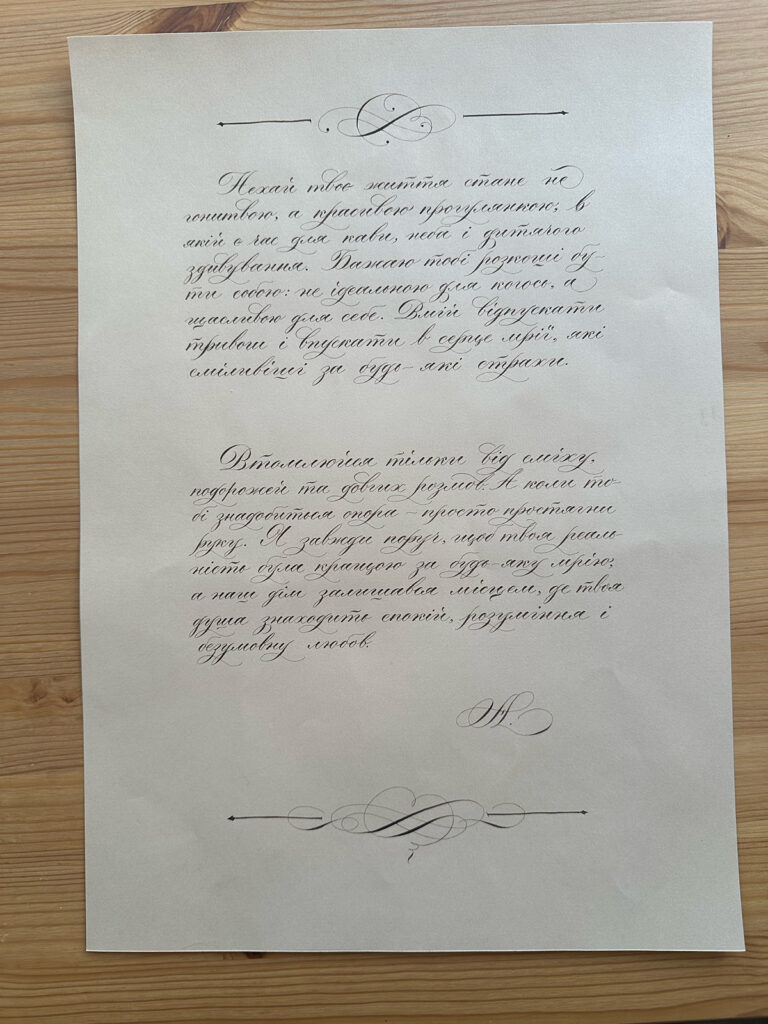 Нехай твоє життя стане не
гонитвою, а красивою прогулянкою, в
якій є час для кави, неба і дитячого
здивування. Бажаю тобі розкоші бу-
ти собою: не ідеальною для когось, а
щасливою для себе. Вмій відпускати
тривоги і впускати в серце мрії, які
сміливіші за будь-які страхи.
Втомлюйся тільки від сміху,
подорожей та довгих розмов. А коли то-
бі знадобиться опора – просто простягни
руку. Я завжди поруч, щоб твоя реаль-
ність була кращою за будь-яку мрію,
а наш дім залишався місцем, де твоя
душа знаходить спокій, розуміння і
безумовну любов.
А.